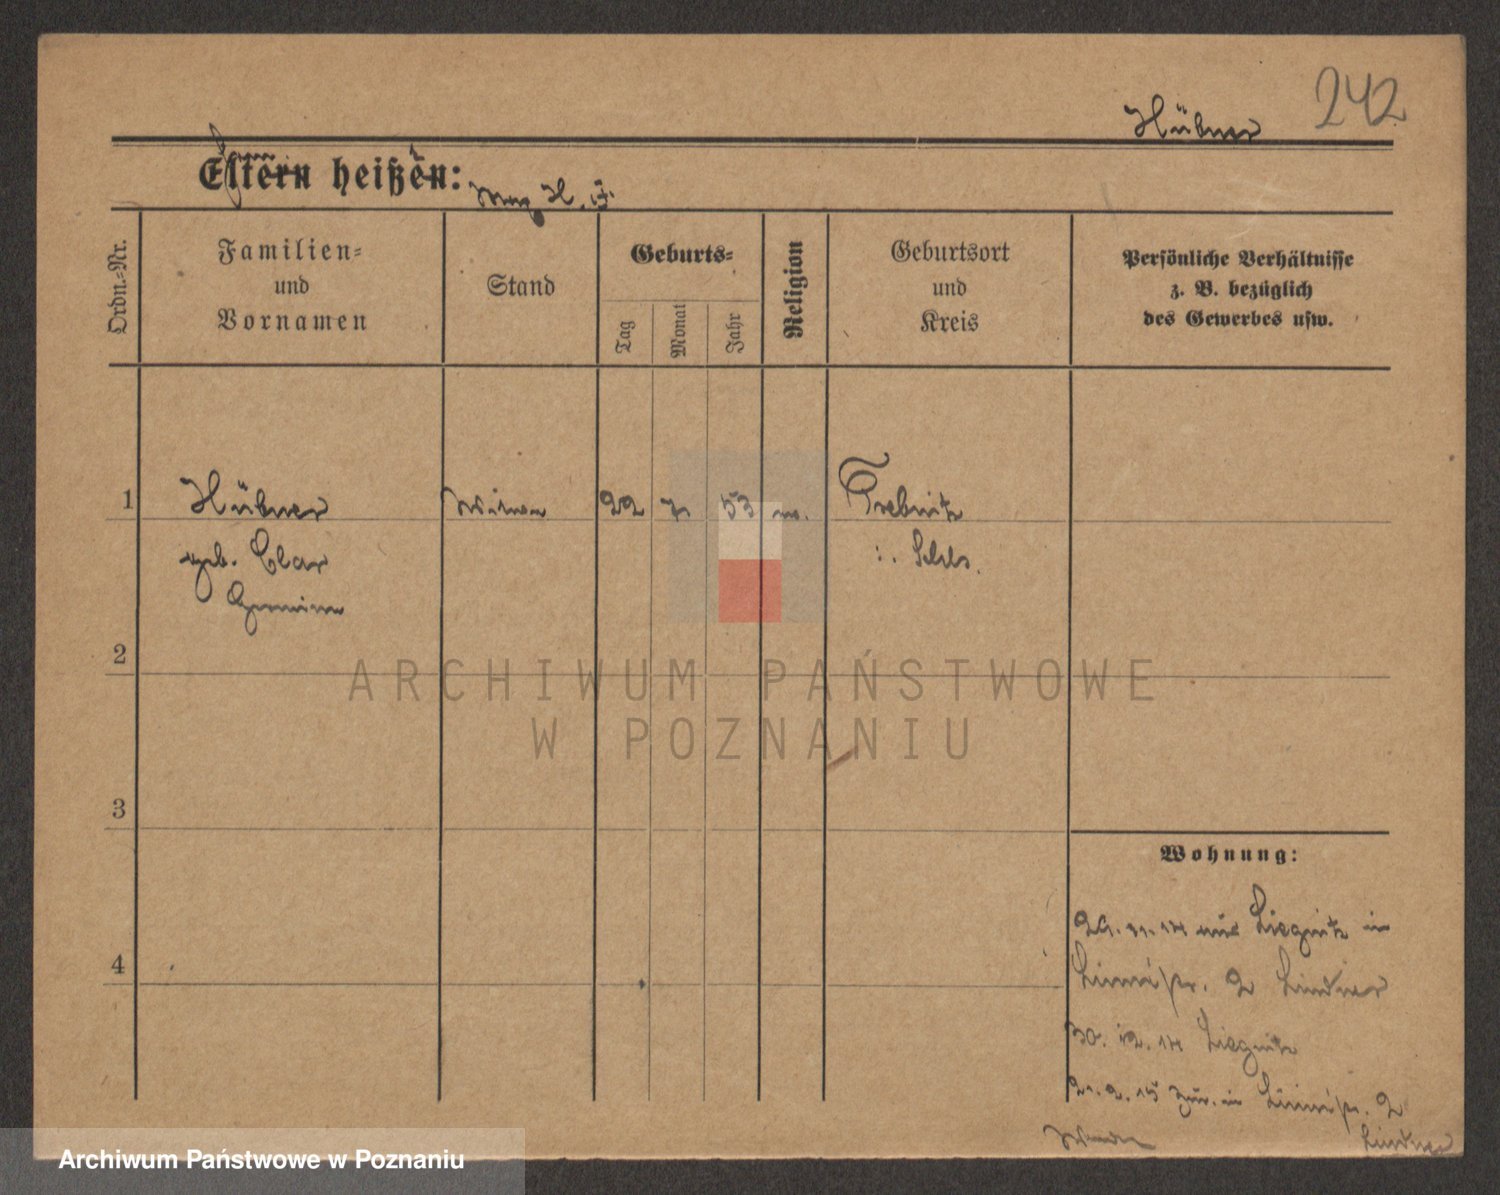 242
Hübner
Eltern heißen:
Ordn.-Nr.
Familien-
und
Vornamen
Stand
Geburts-
Tag
Monat
Jahr
Religion
Geburtsort
und
Kreis
Persönliche Verhältnisse
z. B. bezüglich
des Gewerbes usw.
1 Hübner Witwe 22 7 53 Trebnitz
geb. Clar
i. Schles.
2
3
4
Wohnung:
29. 11. 14 aus Liegnitz in
2 Lindner
30. 12. 14 Liegnitz
21. 2. 15 zur. in 2
Lindner
ARCHIWUM PAŃSTWOWE
W POZNANIU
Archiwum Państwowe w Poznaniu